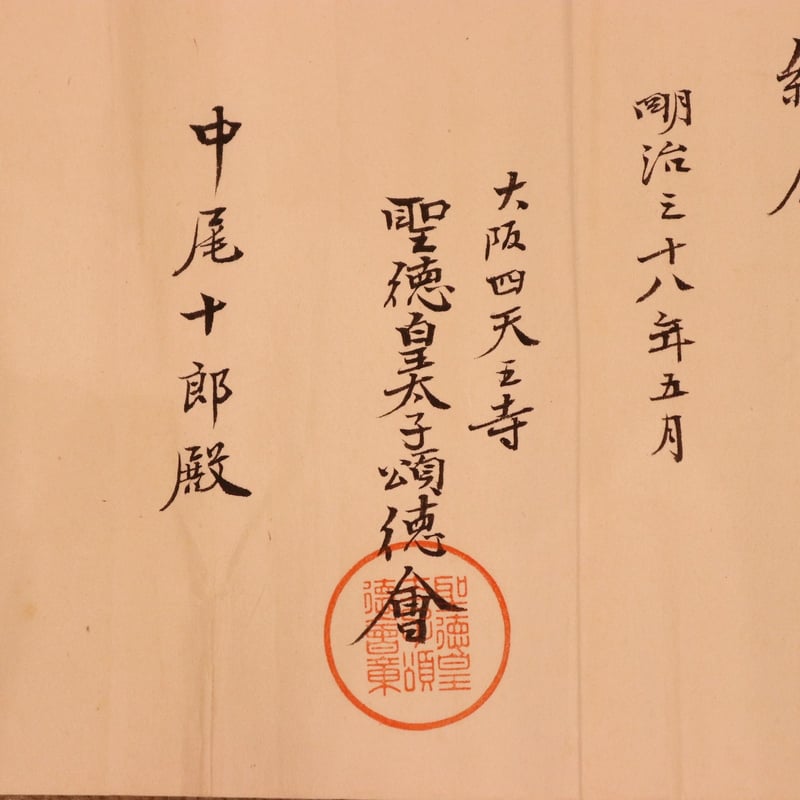 明治三十八年五月
大阪四天王寺
聖徳皇太子頌徳會
聖徳皇
太子頌
徳會章
中尾十郎殿